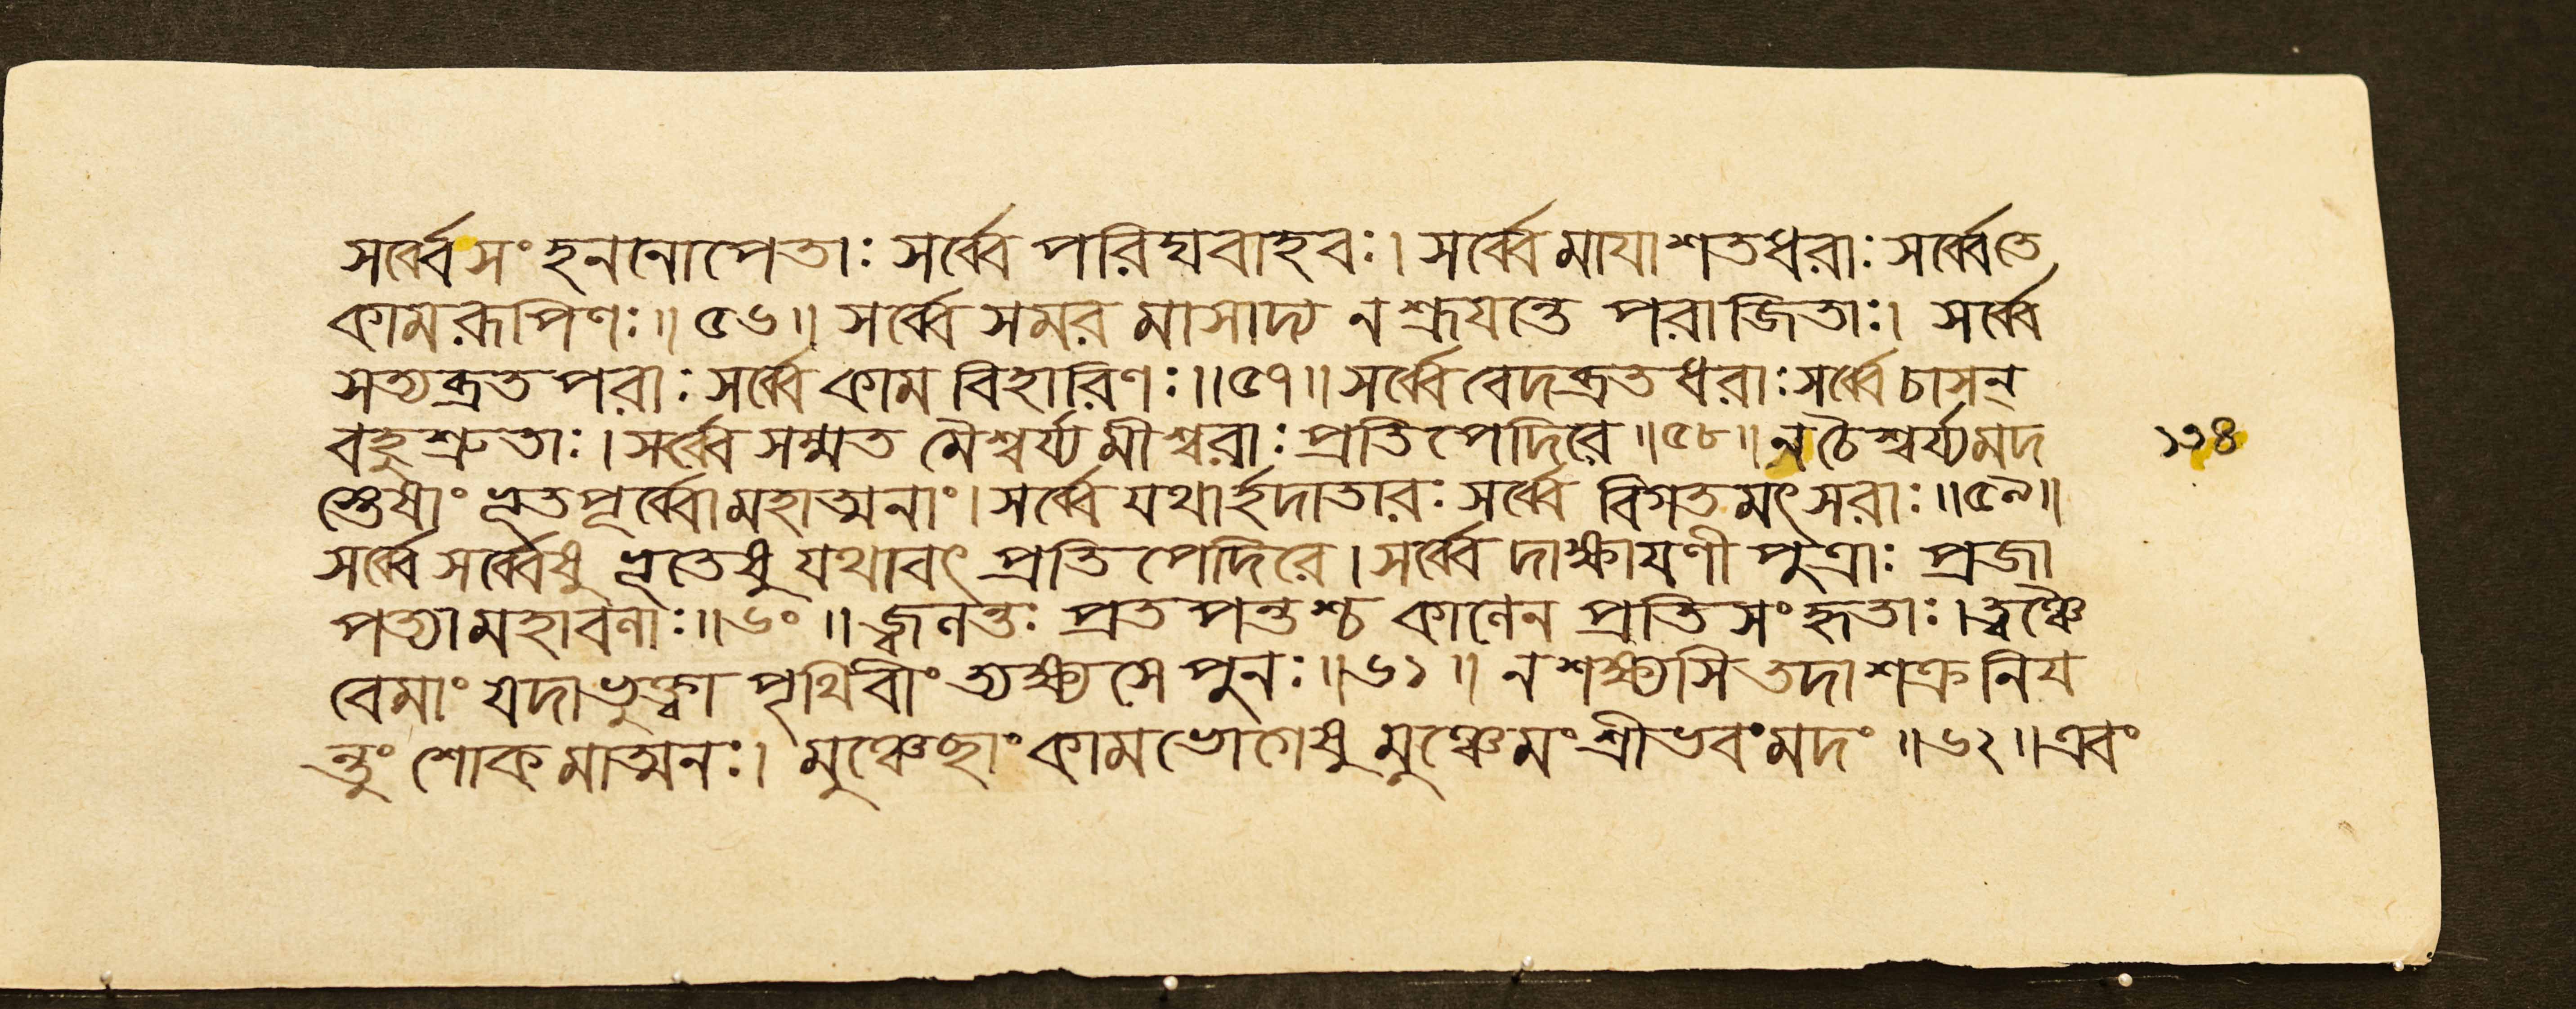 সর্ব্বেসংহননোপেতাঃ সর্ব্বে পরিঘবাহবঃ। সর্ব্বে মাযাশতধরাঃ সর্ব্বেতে
কামরূপিণঃ॥৫৬॥ সর্ব্বে সমর মাসাদ্য ন শ্রূযন্তে পরাজিতাঃ। সর্ব্বে
সত্যব্রতপরাঃ সর্ব্বে কাম বিহারিণঃ॥৫৭॥ সর্ব্বে বেদব্রতধরাঃ সর্ব্বে চাসন্
বহুশ্রুতাঃ। সর্ব্বে সম্মত মৈশ্বর্য্য মীশ্বরাঃ প্রতিপেদিরে॥৫৮॥ নচৈশ্বর্য্যমদ
১৩৪
স্তেষাং ভূতপূর্ব্বো মহাত্মনাং। সর্ব্বে যথার্হদাতারঃ সর্ব্বে বিগতমৎসরাঃ॥৫৯॥
সর্ব্বে সর্ব্বেষু ভূতেষু যথাবৎ প্রতিপেদিরে। সর্ব্বে দাক্ষাযণী পুত্রাঃ প্রজা
পত্যা মহাবলাঃ॥৬০॥ জ্বলন্তঃ প্রতপন্তশ্চ কালেন প্রতিসংহৃতাঃ। ত্বঞ্চৈ
বেমাং যদাভুক্ত্বা পৃথিবীং ত্যক্ষ্যসে পুনঃ॥৬১॥ ন শক্ষ্যসি তদা শক্র নিয
ন্তুং শোক মাত্মনঃ। মুঞ্চেছাং কামভোগেষু মুঞ্চেমং শ্রীভবং মদং॥৬২॥ এবং